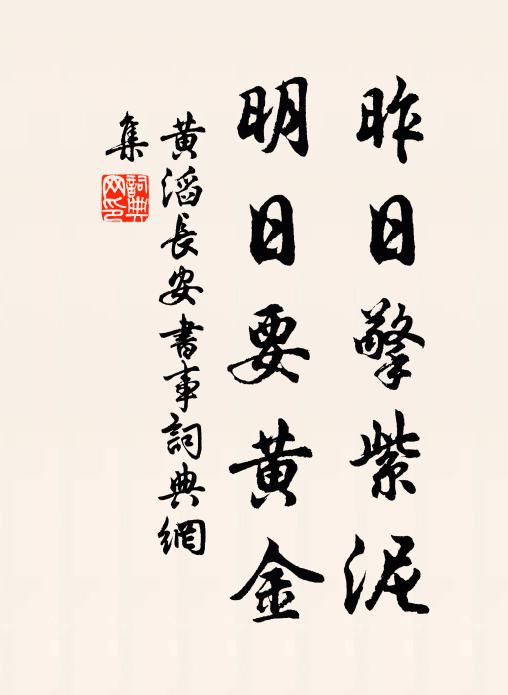 昨日擎紫泥
明日要黄金
黄滔長安書事詞典網
集
詞典
网印